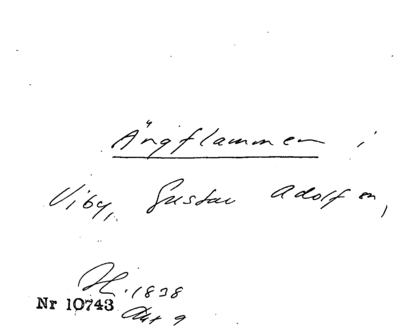 Ängflammen i
Viby, Gustav Adolf sn,
H. 1838
Nr 10743